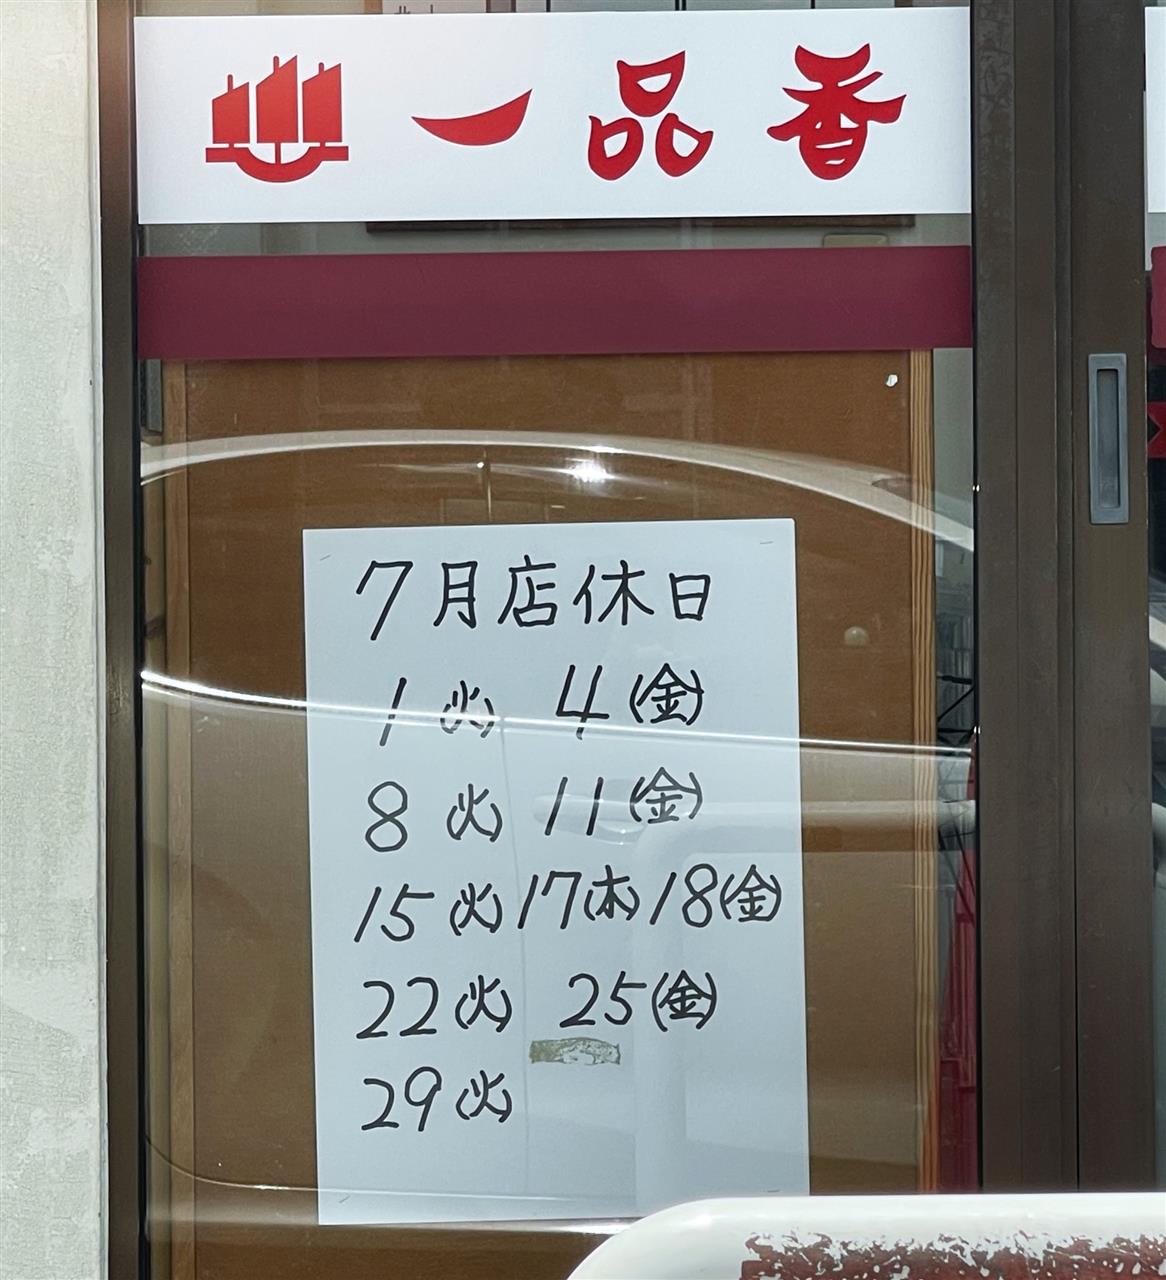 一品香
7月店休日
1(火) 4(金)
8(火) 11(金)
15(火) 17(木) 18(金)
22(火) 25(金)
29(火)